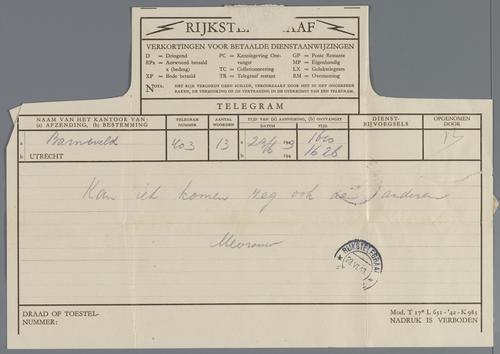 RIJKSTELEGRAAF
VERKORTINGEN VOOR BETAALDE DIENSTAANWIJZINGEN
D = Dringend
RPx = Antwoord betaald
x (bedrag)
XP = Bode betaald
PC = Kennisgeving Ont-
vangst
TC = Collationneering
TR = Telegraaf restant
GP = Poste Restante
MP = Eigenhandig
LX = Geluktelegram
RM = Overseining
NOTA. HET RIJK VERGOEDT GEEN SCHADE, VEROORZAAKT DOOR HET IN HET ONGEREEDE
RAKEN, DE VERMINKING OF DE VERTRAGING IN DE OVERKOMST VAN EEN TELEGRAM.
TELEGRAM
NAAM VAN HET KANTOOR VAN:
(a) AFZENDING, (b) BESTEMMING
TELEGRAM
NUMMER
AANTAL
WOORDEN
TIJD VAN (a) AANNEMING, (b) ONTVANGST
DATUM
TIJD
DIENST-
BIJVOEGSELS
OPGENOMEN
DOOR
a Barneveld 403 13 a 1943 1620
b UTRECHT b 194 1626
Kan ik komen zeg ook de anderen
Mevrouw
RIJKSTELEGRAAF
DRAAD OF TOESTEL-
NUMMER:
Mod. T 17a L 651 - '42 - K 985
NADRUK IS VERBODEN